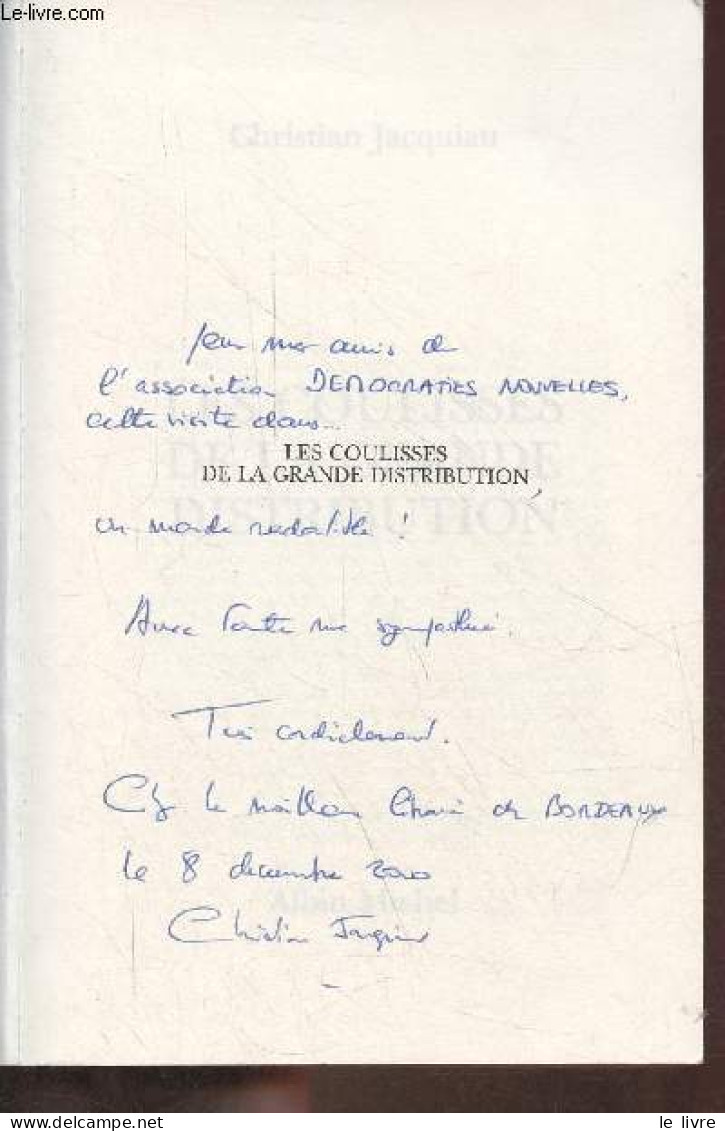 Le-livre.com
Christian Jacquiau
Pour mes amis de
l'association DEMOCRATIES NOUVELLES,
cette visite dans...
LES COULISSES
DE LA GRANDE DISTRIBUTION,
LES COULISSES
DE LA GRANDE
DISTRIBUTION
un monde redoutable !
Avec toute ma sympathie.
Très cordialement.
le meilleur de BORDEAUX
le 8 décembre 2000
Albin Michel
Christian Jacquiau
le livre